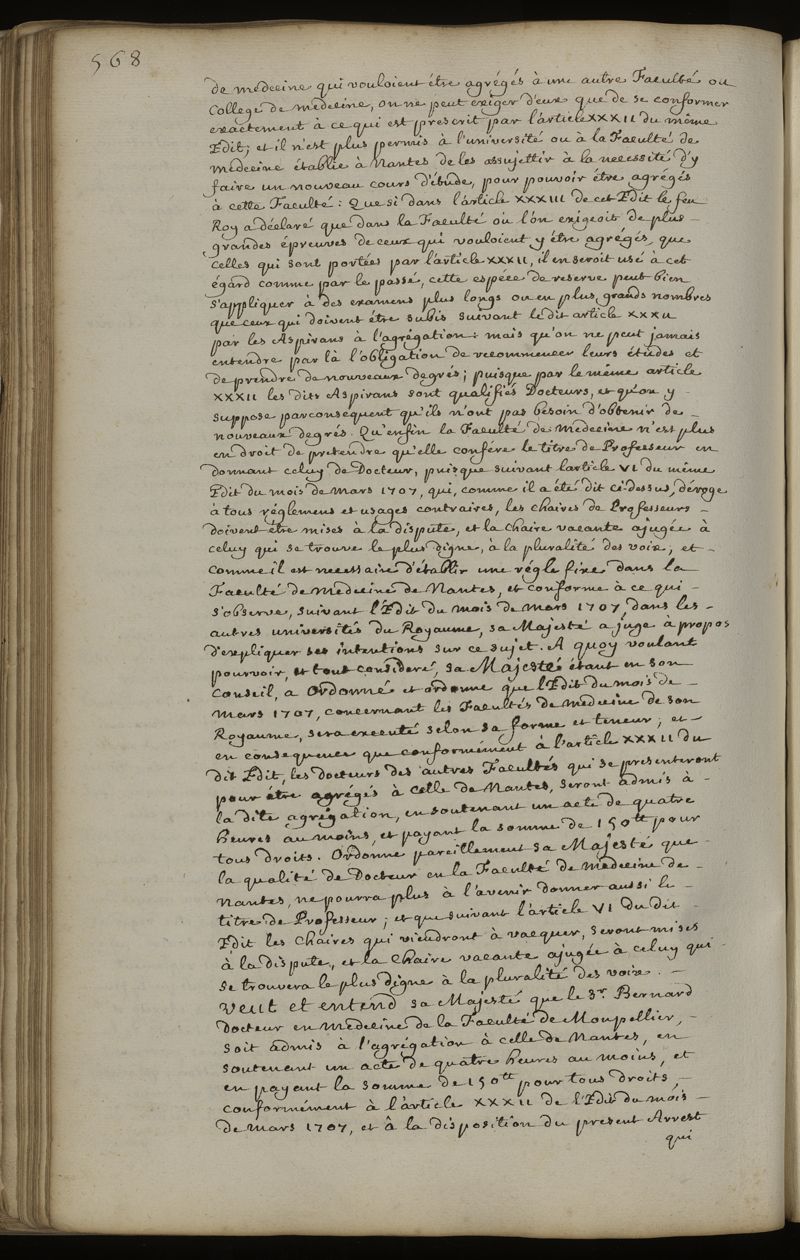 568
de medecine qui vouloient être agrégés à une autre Faculté ou
College de medecine, on ne peut exiger d'eux que de se conformer
exactement à ce qui est prescrit par l'article XXXII du même
Edit; et il n'est plus permis à l'université ou à la Faculté de
medecine établie à Nantes de les assujettir à la necessité d'y
faire un nouveau cours d'étude, pour pouvoir être agrégés
à cette Faculté: Que si dans l'article XXXIII de cet Edit le feu
Roy a déclaré que dans la Faculté où l'on exigeoit de plus -
grandes épreuves de ceux qui vouloient y être agrégés, que
celles qui sont portées par l'article XXXII, il en seroit usé à cet
égard comme par le passé, cette espéce de reserve peut bien
s'appliquer à des examens plus longs ou en plus grands nombres
que ceux qui doivent être subis suivant ledit article XXXII
par les Aspirans à l'agrégation: mais qu'on ne peut jamais
entendre par là l'obligation de recommencer leurs études et
de prendre de nouveaux degrés; puisque par le même article
XXXII les dits Aspirans sont qualifiés Docteurs, et qu'on y -
suppose parconsequent qu'ils n'ont pas besoin d'obtenir de -
nouveaux degrés. Qu'enfin la Faculté de Medecine n'est plus
en droit de pretendre qu'elle confére le titre de Professeur en
donnant celuy de Docteur, puisque suivant l'article VI du même
Edit du mois de Mars 1707, qui, comme il a été dit ci-dessus, déroge
à tous réglemens et usages contraires, les chaires de Professeurs -
doivent être mises à la dispute, et la chaire vacante ajugée à
celuy qui se trouve le plus digne, à la pluralité des voix; et -
comme il est necessaire d'établir une régle fixe dans la
Faculté de Medecine de Nantes, et conforme à ce qui -
s'observe, suivant l'Edit du mois de Mars 1707, dans les -
autres universités du Royaume, sa Majesté a jugé à propos
d'expliquer ses intentions sur ce sujet. A quoy voulant
pourvoir, et tout consideré, sa Majesté étant en son
Conseil, a ordonné et ordonne que l'Edit du mois de -
Mars 1707, concernant les Facultés de medecine de son
Royaume, sera executé selon sa forme et teneur; et -
en consequence que conformément à l'article XXXII du
dit Edit, les docteurs des autres Facultés qui se presenteront
pour être agrégés à celle de Nantes, seront admis à -
la dite agrégation, en soutenant un acte de quatre
heures au moins, et payant la somme de 150tt pour
tous droits. Ordonne pareillement sa Majesté que -
la qualité de Docteur en la Faculté de Medecine de -
Nantes, ne pourra plus à l'avenir donner aussi le -
titre de Professeur; et que suivant l'article VI du dit -
Edit les Chaires qui viendront à vacquer, seront mises
à la dispute, et la Chaire vacante ajugée à celuy qui
se trouvera le plus digne à la pluralité des voix. -
Veut et entend sa Majesté que le Sr. Bernard
Docteur en Medecine de la Faculté de Monpellier, -
soit admis à l'agrégation à celle de Nantes, en
soutenant un acte de quatre heures au moins, et
en payant la somme de 150tt pour tous droits, -
conformément à l'article XXXII de l'Edit du mois -
de Mars 1707, et à la disposition du present Arrest
qui